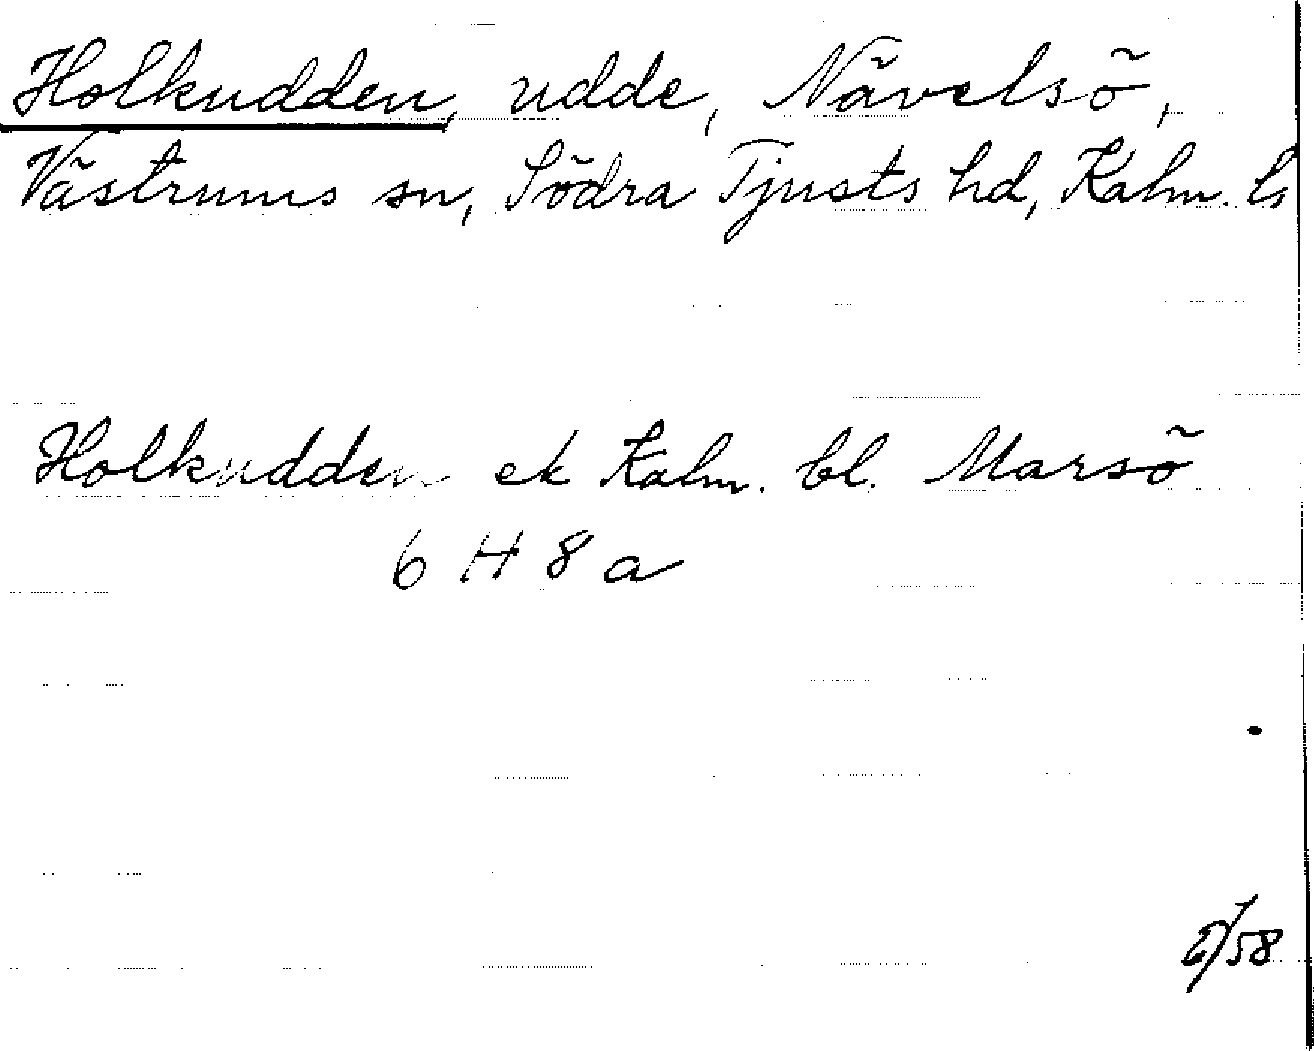 Holkudden, udde, Nävelsö,
Västrums sn, Södra Tjusts hd, Kalm. l
Holkudden ek Kalm. bl. Marsö
6 H 8 a
/58